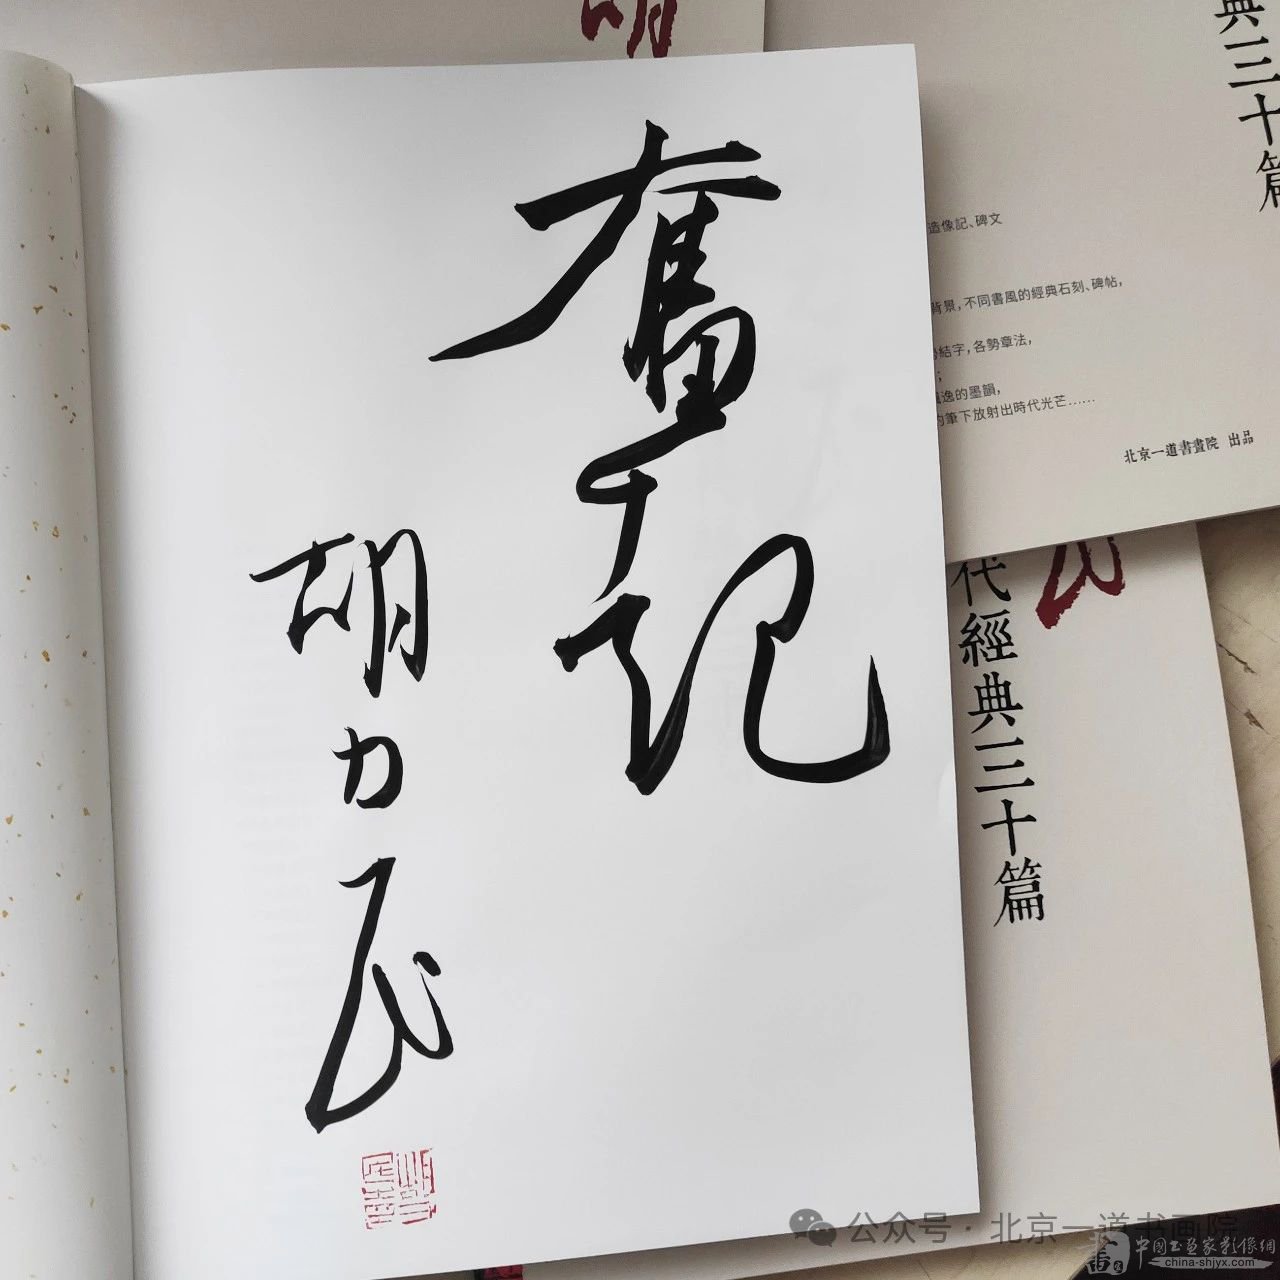 奮起
胡力民
胡
典三十篇
造像記、碑文
背景，不同書風的經典石刻、碑帖，
結字，各勢章法，
逸的墨韻，
筆下放射出時代光芒……
北京一道書畫院 出品
民
代經典三十篇
公众号·北京一道书画院
中国书画家影像網
www.china-shjyx.com